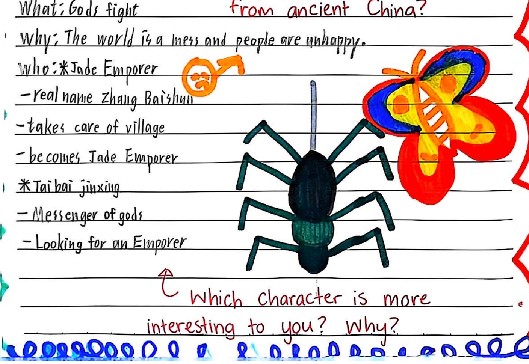 What: Gods fight
from ancient China?
Why: The world is a mess and people are unhappy.
Who: *Jade Emporer
- real name Zhang Baishun
- takes care of village
- becomes Jade Emporer
* Taibai jinxing
- Messenger of gods
- Looking for an Emporer
Which character is more
interesting to you? Why?